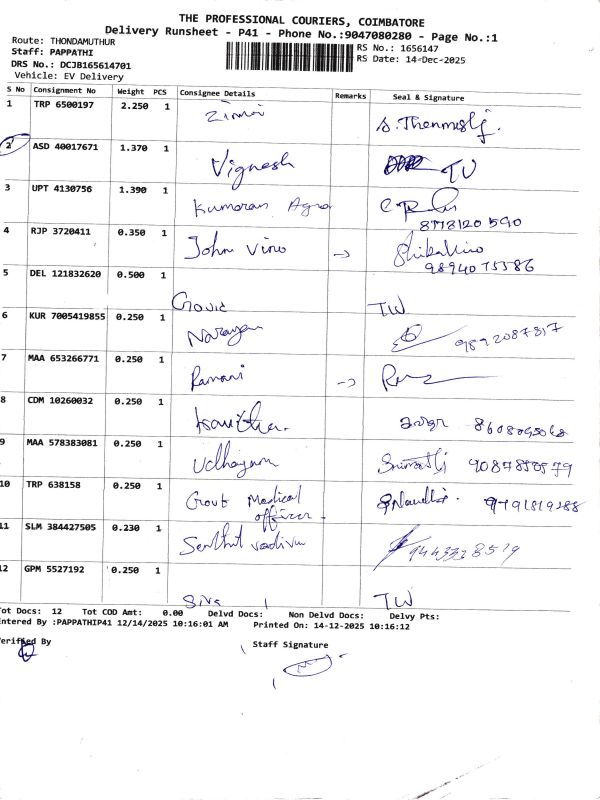 THE PROFESSIONAL COURIERS, COIMBATORE
Delivery Runsheet - P41 - Phone No.:9047080280 - Page No.:1
Route: THONDAMUTHUR
RS No.: 1656147
Staff: PAPPATHI
RS Date: 14-Dec-2025
DRS No.: DCJB165614701
Vehicle: EV Delivery
S No Consignment No Weight PCS Consignee Details Remarks Seal & Signature
1 TRP 6500197 2.250 1
2 ASD 40017671 1.370 1 Vignesh TW
3 UPT 4130756 1.390 1 Kumaran Agro
8778120590
4 RJP 3720411 0.350 1 John Vino →
9894075586
5 DEL 121832620 0.500 1 TW
6 KUR 7005419855 0.250 1 Narayan
7 MAA 653266771 0.250 1 Ramani →
8 CDM 10260032 0.250 1
9 MAA 578383081 0.250 1 Udhayam
10 TRP 638158 0.250 1 Govt Medical officer. 9791819288
11 SLM 384427505 0.230 1 Senthil vadivu
12 GPM 5527192 0.250 1 Siva TW
Tot Docs: 12 Tot COD Amt: 0.00 Delvd Docs: Non Delvd Docs: Delvy Pts:
Entered By :PAPPATHIP41 12/14/2025 10:16:01 AM Printed On: 14-12-2025 10:16:12
Verified By Staff Signature